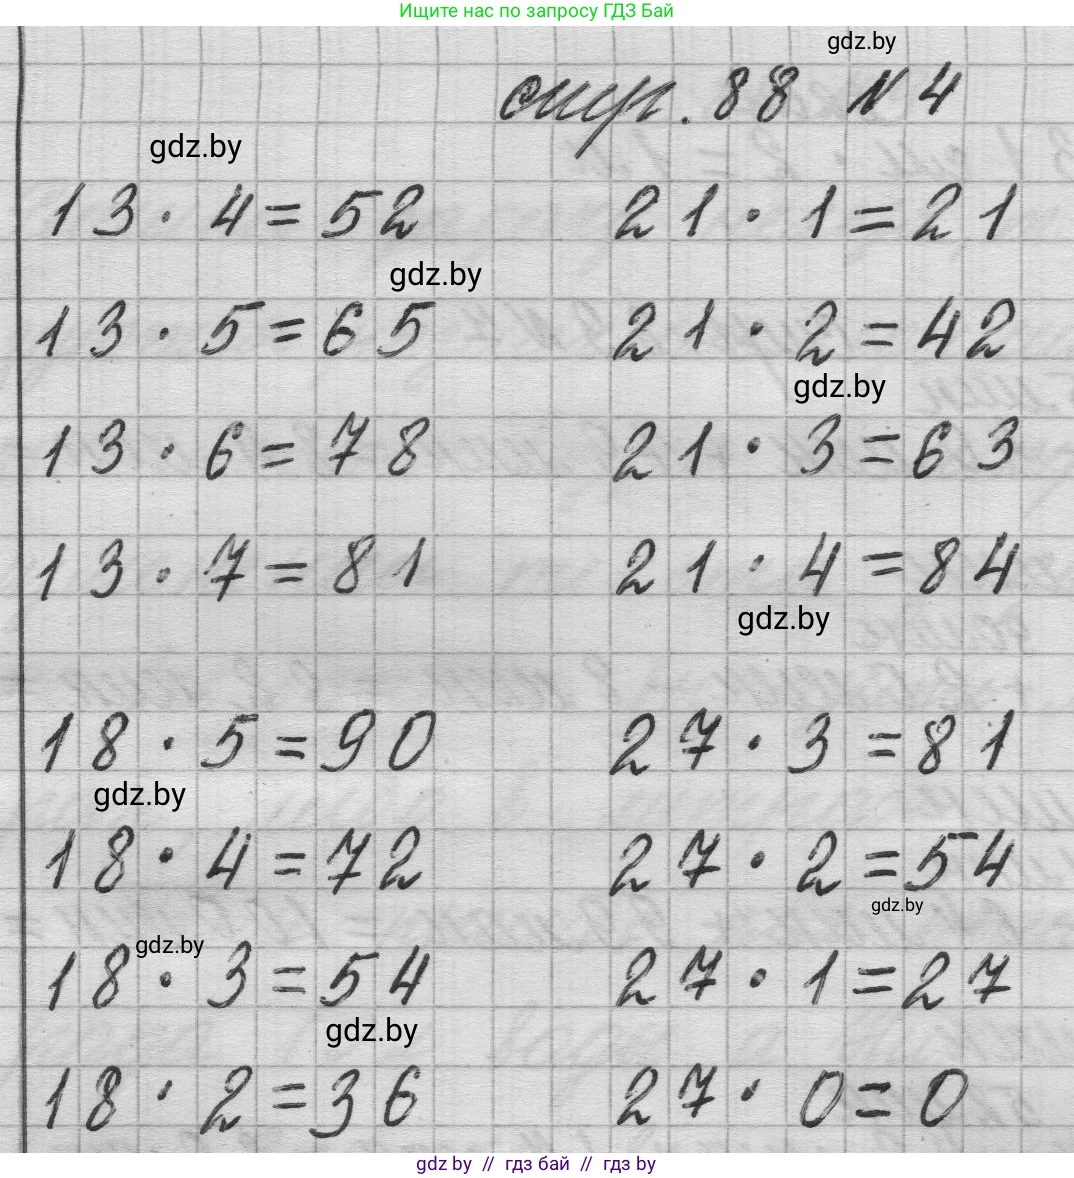 Ищите нас по запросу ГДЗ Бай
gdz.by
стр. 88 № 4
gdz.by
13 · 4 = 52 21 · 1 = 21
gdz.by
13 · 5 = 65 21 · 2 = 42
gdz.by
13 · 6 = 78 21 · 3 = 63
13 · 7 = 81 21 · 4 = 84
gdz.by
18 · 5 = 90 27 · 3 = 81
gdz.by
18 · 4 = 72 27 · 2 = 54
gdz.by
gdz.by
18 · 3 = 54 27 · 1 = 27
gdz.by
18 · 2 = 36 27 · 0 = 0
gdz by // гдз бай // гдз by